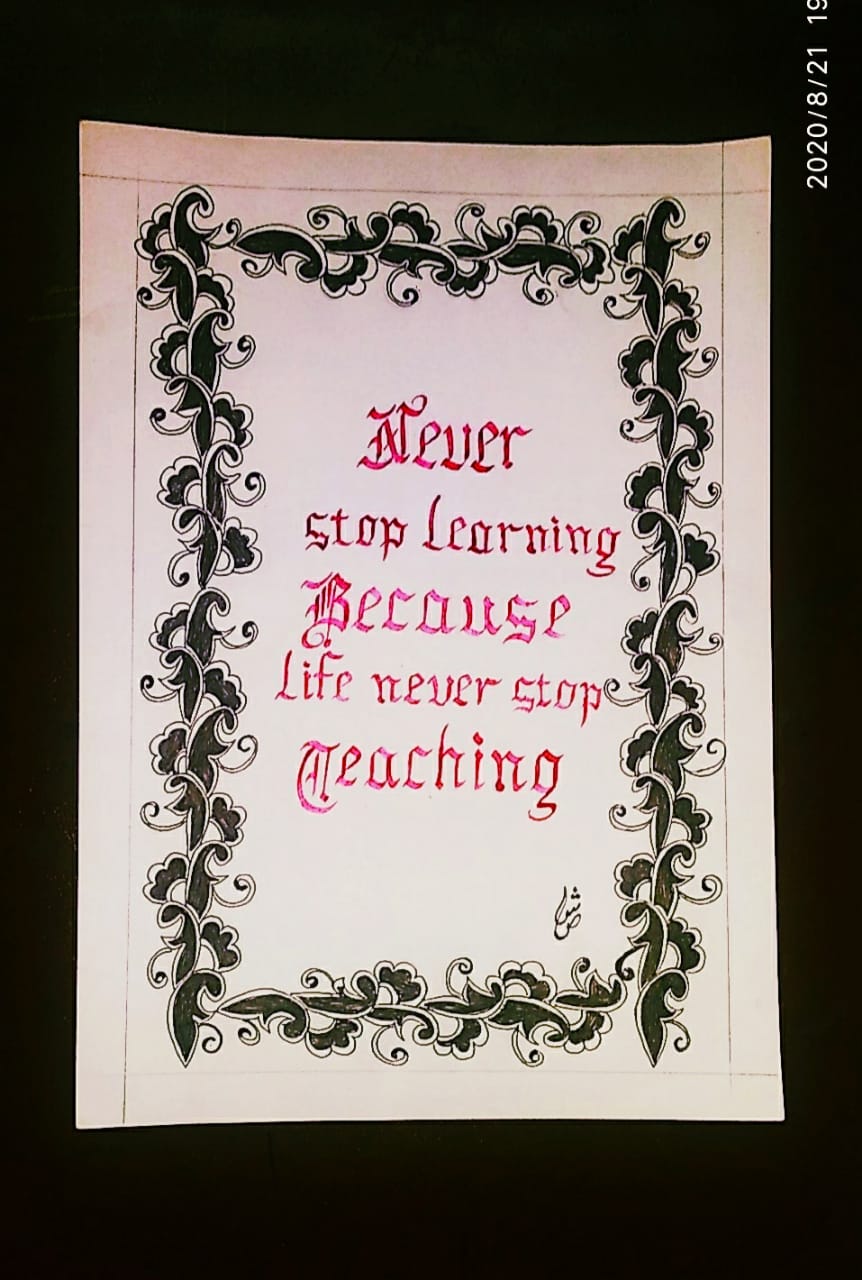 2020/8/21 19
Never
stop learning
Because
life never stop
Teaching